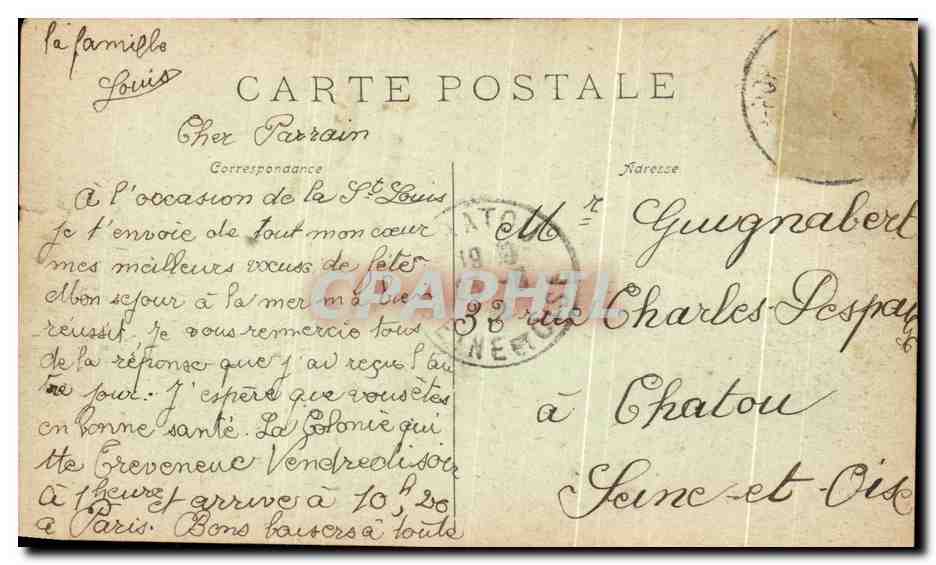 la famille
Louis
CARTE POSTALE
Cher Parrain
Correspondance
À l'occasion de la St Louis
je t'envoie de tout mon cœur
mes meilleurs vœux de fête
Mon sejour à la mer m'a bien
réussit, je vous remercie tous
de la réponse que j'ai reçu l'au
tre jour. J'espère que vous êtes
en bonne santé. La Colonie qui
tte Treveneuc Vendredi soir
à 1 heure et arrive à 10h 20
à Paris. Bons baisers à toute
Adresse
Mr Guignabert
33 rue Charles-Despaux
à Chatou
Seine-et-Oise
CHATOU
19
SEINE-ET-OISE
CPAPHIL.COM